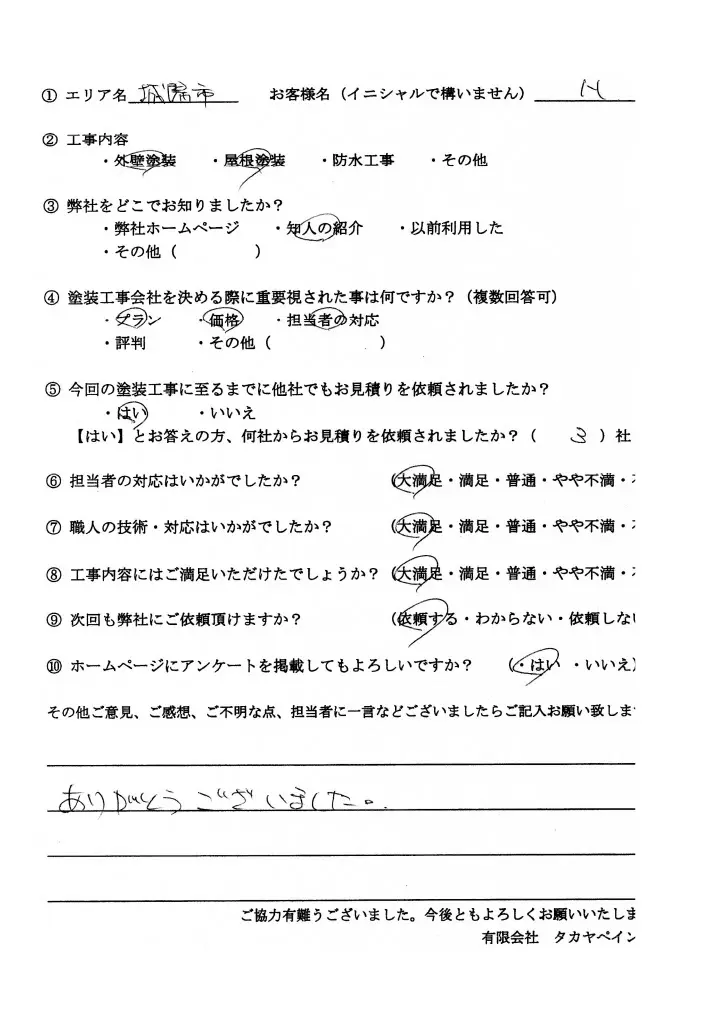 ① エリア名 城陽市 お客様名（イニシャルで構いません） N
② 工事内容
・外壁塗装 ・屋根塗装 ・防水工事 ・その他
③ 弊社をどこでお知りましたか？
・弊社ホームページ ・知人の紹介 ・以前利用した
・その他（ ）
④ 塗装工事会社を決める際に重要視された事は何ですか？（複数回答可）
・プラン ・価格 ・担当者の対応
・評判 ・その他（ ）
⑤ 今回の塗装工事に至るまでに他社でもお見積りを依頼されましたか？
・はい ・いいえ
【はい】とお答えの方、何社からお見積りを依頼されましたか？（ 3 ）社
⑥ 担当者の対応はいかがでしたか？ （大満足・満足・普通・やや不満・
⑦ 職人の技術・対応はいかがでしたか？ （大満足・満足・普通・やや不満・
⑧ 工事内容にはご満足いただけたでしょうか？（大満足・満足・普通・やや不満・
⑨ 次回も弊社にご依頼頂けますか？ （依頼する・わからない・依頼しない
⑩ ホームページにアンケートを掲載してもよろしいですか？ （・はい ・いいえ）
その他ご意見、ご感想、ご不明な点、担当者に一言などございましたらご記入お願い致しま
ありがとうございました。
ご協力有難うございました。今後ともよろしくお願いいたしま
有限会社 タカヤペイン